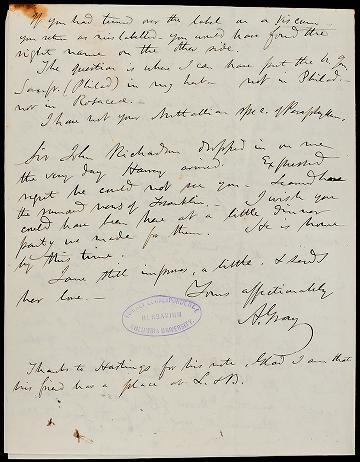 If you had turned over the label on a Viscum
you return as mislabelled - you would have found the
right name on the other side.
The question is where I can have put the
(Philad.) in my herb. not in Philad.
nor in Rosaceae.
I have not your Nuttallian spec. of
Sir John Richardson dropped in on me
the very day Harvey arrived. Expressed
regret he could not see you - Learned here
the rumored news of Franklin. - I wish you
could have been here at a little dinner
party we made for them. He is home
by this time.
Jane still improves, a little, & sends
her love. -
Yours affectionately
A. Gray
TORREY CORRESPONDENCE
HERBARIUM
COLUMBIA UNIVERSITY.
Thanks to Hastings for his note. Glad I am that
his friend has a place at L. & B.